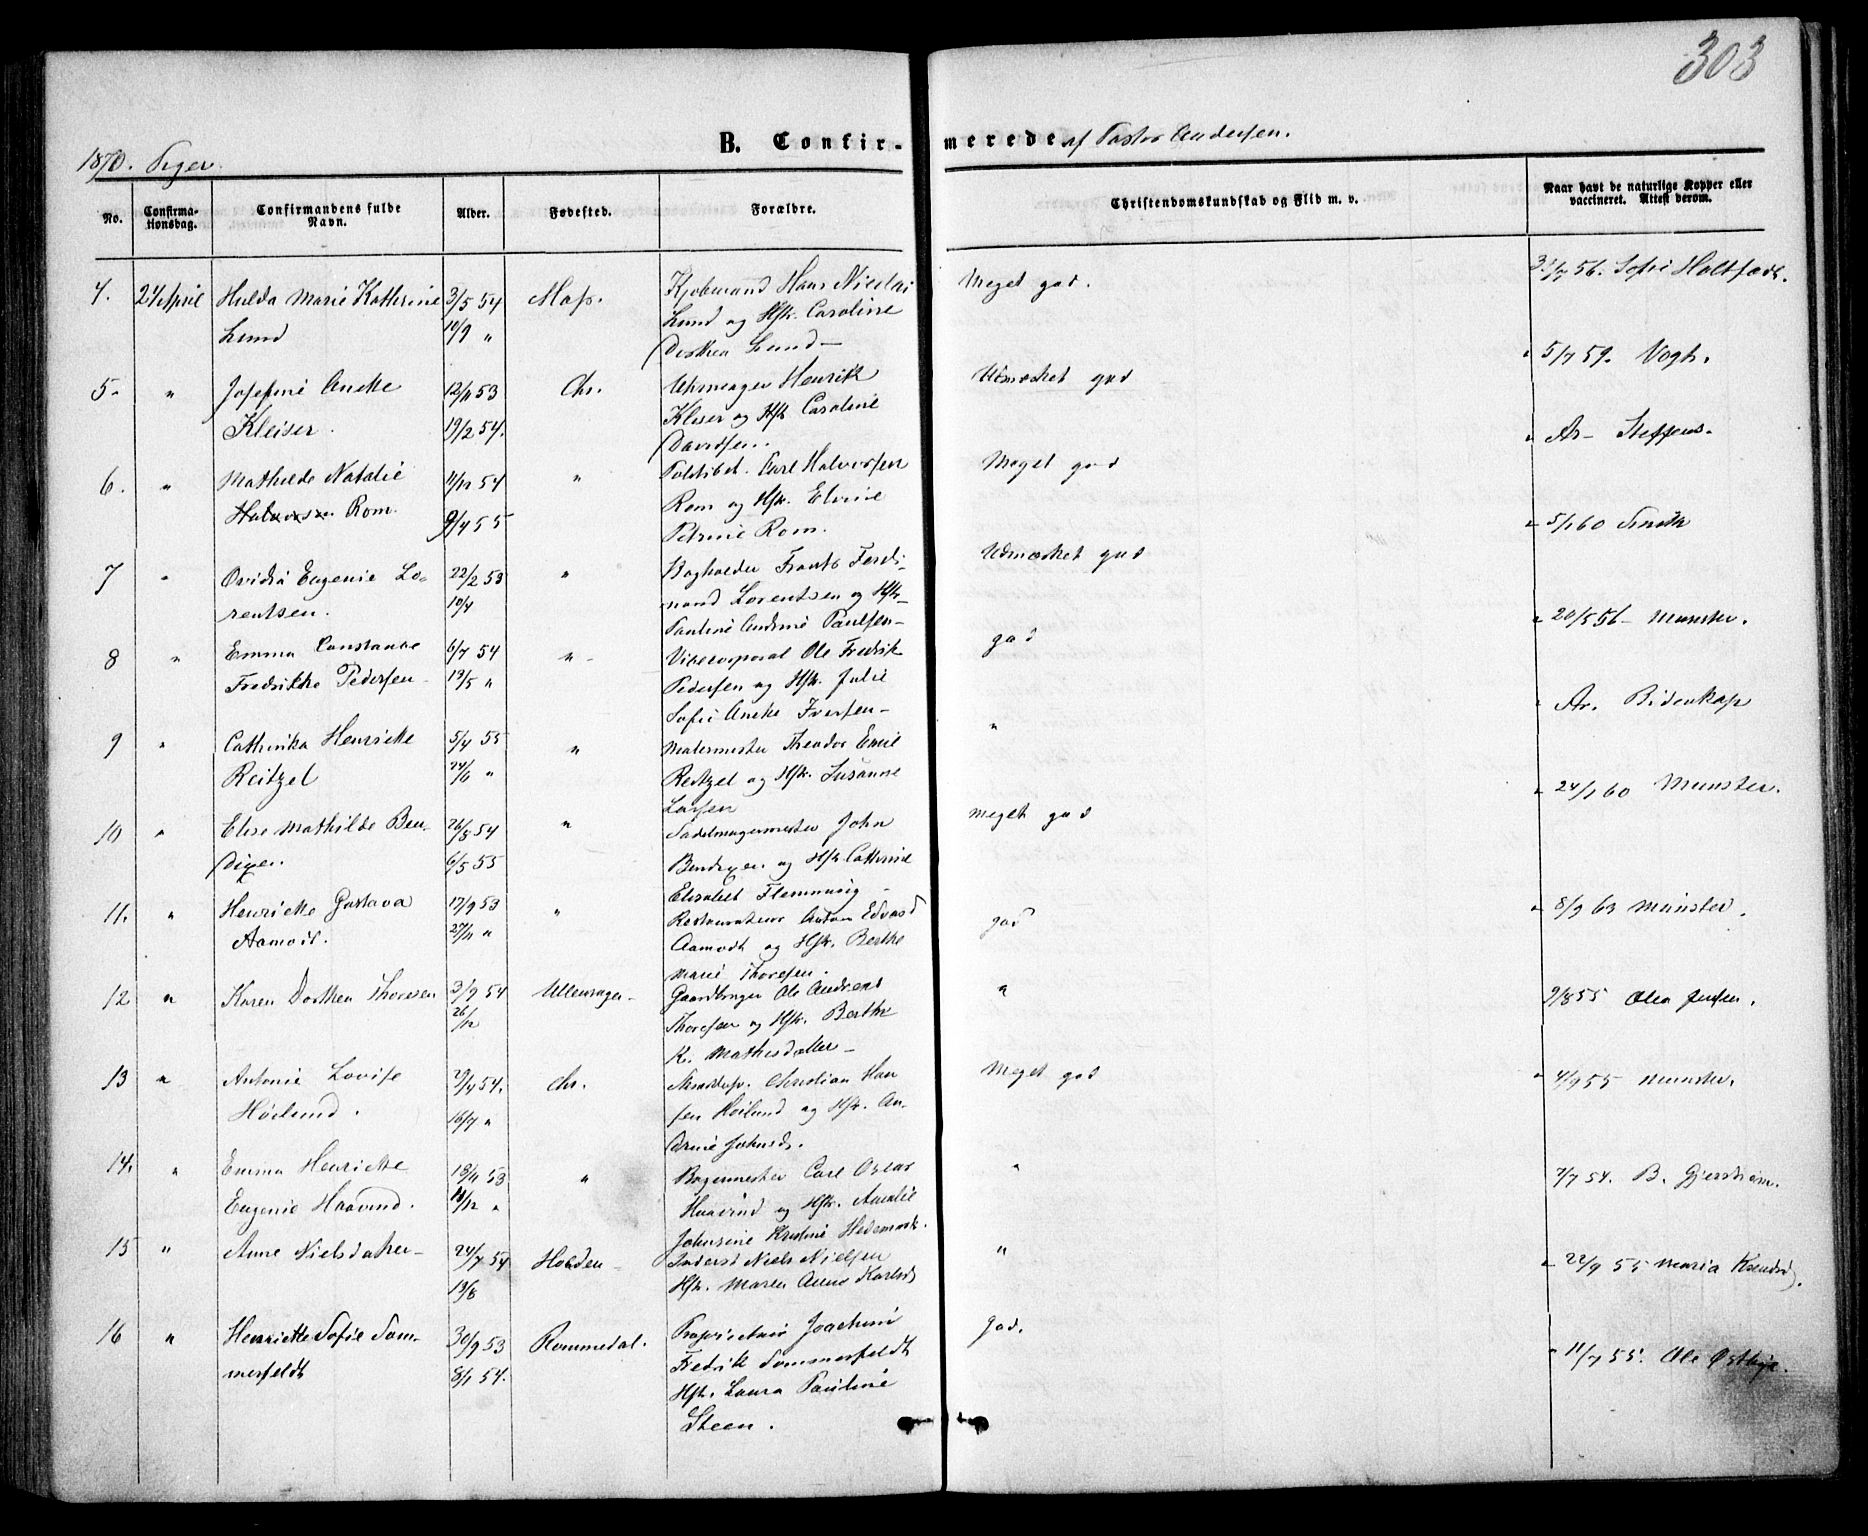 303
B. Confirmerede af Pastor Andersen.
1870. Piger.
No.
Confirmationsdag.
Confirmandens fulde Navn.
Alder.
Fødested.
Forældre.
Christendomskundskab og Flid m. v.
Naar havt de naturlige Kopper eller vaccineret. Attest derom.
4. 24 April Hulda Marie Kathrine 3/5 54 Moss. Kjøbmand Hans Nicolai Meget god.
Lund 10/9 " Lund og Hstr. Caroline
Dorthea Lund
5. " Josefine Anette 12/11 53 Chr. Uhrmager Henrik Udmærket god 5/7 59. Vogt.
Kleiser. 19/2 54. Kleiser og Hstr Caroline
Davidsen.
6. " Mathilde Natalie 11/12 54 " Politibet. Carl Halvorsen Meget god Ar- Steffens.
Halvorsen Rom. 9/4 55 Rom og Hstr. Elvine
Petrine Rom.
7 " Ovidia Eugenie Lo- 22/2 53 " Bogholder Frants Ferdi- Udmærket god 5/1 60 Smith
rentsen. 10/4 nand Lorentsen og Hstr
Pauline Andrine Paulsen
8 " Emma Constance 6/4 54 " Vicecorporal Ole Fredrik god 20/5 56 Munster.
Fredrikke Pedersen 13/5 " Pedersen og Hstr. Julie
Sofie Anette Iversen
9 " Cathrika Henriette 5/4 55 " Malermester Theodor Emil " Ar. Bidenkap
Reitzel 24/6 " Reitzel og Hstr. Susanne
Larsen
10 " Elise Mathilde Ben- 26/8 54 " Sadelmagermester John Meget god 24/1 60 Munster.
dixen 6/5 55 Bendixen og Hstr Cathrine
Elisabet Flemming
11. " Henriette Gustava 17/9 53 " Restaurateur Anton Edvard god 8/9 63 Munster.
Aamodt. 27/11 " Aamodt og Hstr. Berthe
Marie Thoresen.
12 " Karen Dorthea Thoresen 3/9 54 Ullensager Gaardbruger Ole Andreas " 9/8 55 Olea Jensen.
26/12 Thoresen og Hstr. Berthe
K. Mathisdatter
13 " Antonie Lovise 29/4 54. Chr. Christian Han Meget god 4/9 55 Munster.
Høilund. 16/7 " sen Høilund og Hstr. An-
drine Johnsd.
14. " Emma Henriette 18/11 53 " Bagermester Carl Oscar " 7/7 54. B.
Eugenie Haavind. 18/12 " Haavind og Hstr. Amalie
Johnsine Kristine Hedemark.
15 " Anne Nielsdatter 24/7 54 Inderst Niels Nielsen " 22/9 55 Maria
13/8 Hstr. Maren Anne Karlsd
16 " Henriette Sofie Som- 30/9 53 Rommedal. Proprietair Joachim God. 11/7 55. Ole Østbye.
merfeldt 8/1 54. Fredrik Sommerfeldt
Hstr. Laura Pauline
Steen.